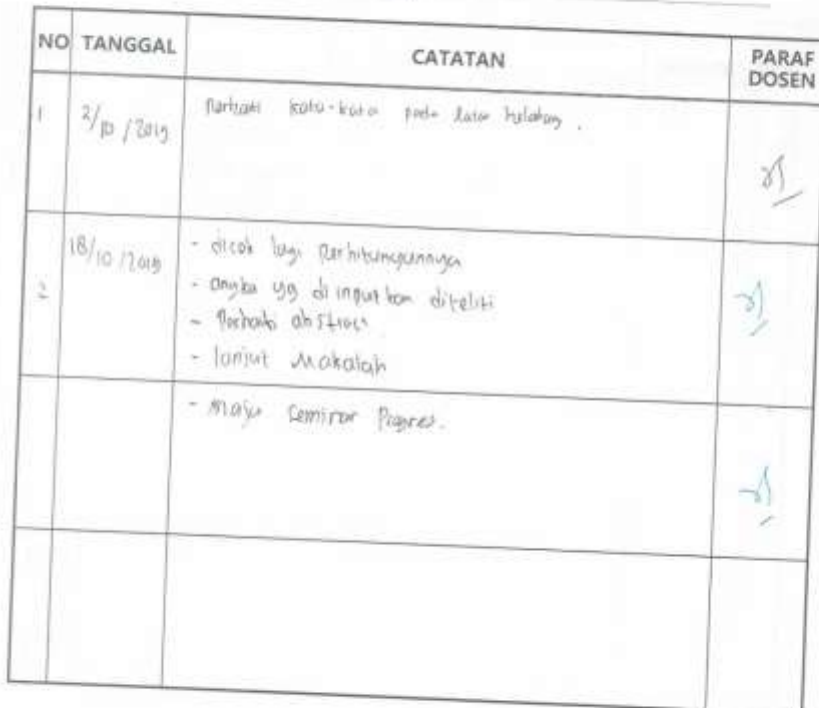 NO TANGGAL CATATAN PARAF DOSEN
1 2/10/2019 kata-kata pada latar belakang.
2 18/10/2019 - dicek lagi perhitungannya
- angka yg di inputkan diteliti
- abstract
- lanjut Makalah
- Maju Seminar Progres.